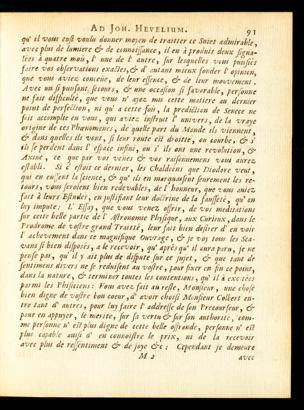 AD JOH. HEVELIUM. 91
qu'il vous eust voulu donner moyen de traitter ce Sujet admirable,
avec plus de lumiere & de connoissance, il en à produit deux signa-
lées à quatre mois, l'une de l'autre, sur lesquelles vous puissiés
faire vos observations exactes, & d'autant mieux fonder l'opinion,
que vous aviez conceüe, de leur essence, & de leur mouvement.
Avec un si puissant, secours, & une occasion si favorable, personne
ne fait difficulté, que vous n'ayez mis cette matiere au dernier
point de perfection, ni qu'a cette fois, la prediction de Senece ne
soit accomplie en vous, qui aviez instruit l'univers, de la vraye
origine de ces Phenomenes, de quelle part du Monde ils viennent,
& dans quelles ils vont, si leur route est droitte, ou courbe, & s'
ils se perdent dans l'espace infini, ou s'ils ont une revolution, &
Axine, ce que par vos veües & vos raisonnemens vous aurez
establi. Si c'estoit ce dernier, les Chaldéens que Diodore veut,
qui en eussent la science, & qu'ils en marquassent seurement les re-
tours, vous seroient bien redevables, de l'honneur, que vous auriez
fait à leurs Estudes, en justifiant leur doctrine de la fausseté, qu'on
luy impute. L'Essay, que vous venez offrir, de vos meditations
sur cette belle partie de l'Astronomie Physique, aux Curieux, dans le
Prodrome de vostre grand Traitté, leur fait bien desirer d'en voir
l'achevement dans ce magnifique Ouvrage, & je voy tous les Sca-
vans si bien disposés, a le recevoir, qu'aprés qu'il aura paru, je ne
pense pas, qu'il y ait plus de dispute sur ce sujet, & que tant de
sentimens divers ne se reduisent au vostre, pour fixer en fin ce point,
dans la nature, & terminer toutes les contentions, qu'il à excitées
parmi les Phisiciens: Vous avez fait au reste, Monsieur, une chose
bien digne de vostre bon coeur, d'avoir choisi Monsieur Colbert en-
tre tant d'autres, pour luy faire l'addresse de son Precourseur, &
pour en appuyer, le merite, sur sa vertu & sur son authorité, com-
me personne n'est plus digne de cette belle offrande, personne n'est
plus capable aussi d'en connoistre le prix, ni de la recevoir
avec plus de ressentiment & de joye &c: Cependant je demeure
M 2 avec